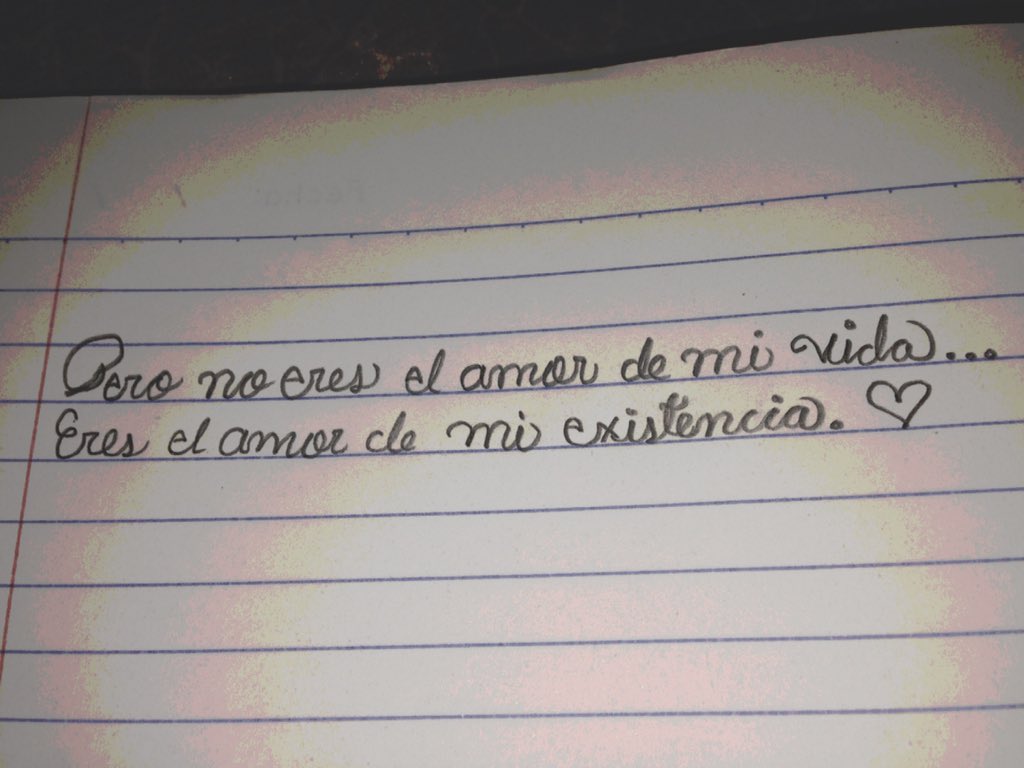 Fecha:
Pero no eres el amor de mi vida...
Eres el amor de mi existencia. ♡